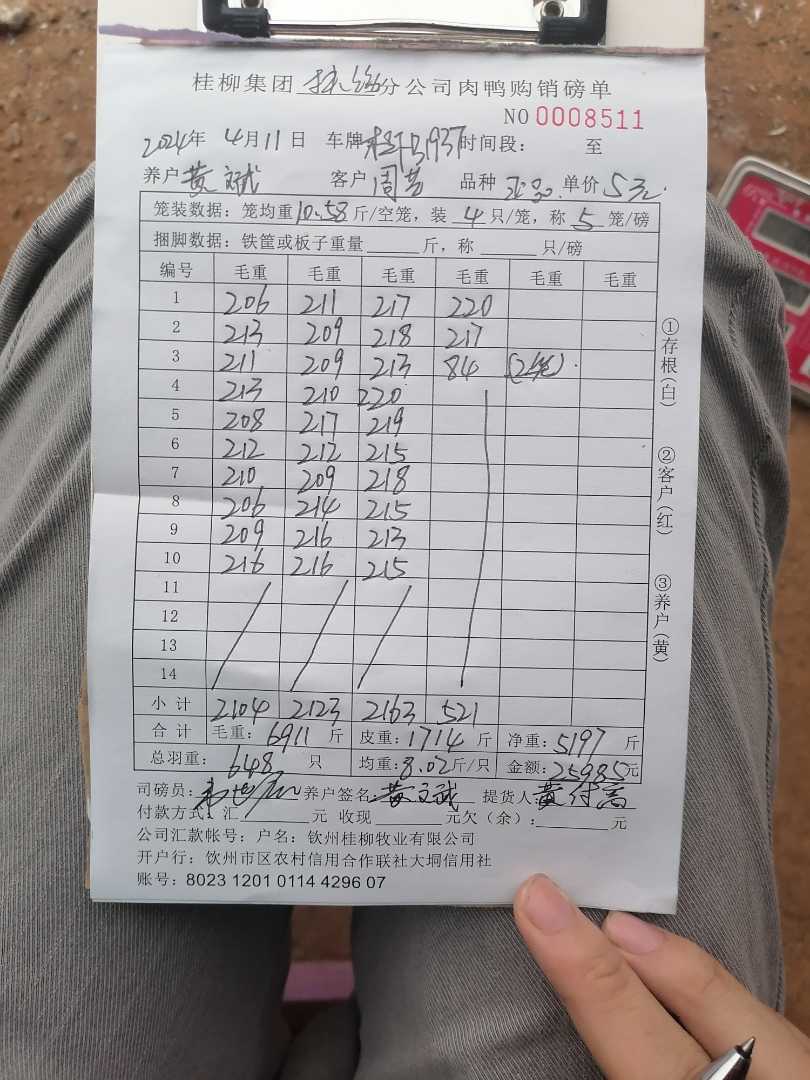 桂柳集团 分公司肉鸭购销磅单
NO 0008511
2024年 4月11日 车牌 时间段: 至
养户 黄文斌 客户 周芳 品种 单价 5元
笼装数据:笼均重10.58斤/空笼,装 4 只/笼,称 5 笼/磅
捆脚数据:铁筐或板子重量______斤,称______只/磅
编号 毛重 毛重 毛重 毛重 毛重 毛重
1 206 211 217 220
2 213 209 218 217
3 211 209 213 84 (2笼)
4 213 210 220
5 208 217 219
6 212 212 215
7 210 209 218
8 206 214 215
9 209 216 213
10 216 216 215
11
12
13
14
小计 2104 2123 2163 521
合计 毛重:6911斤 皮重:1714斤 净重:5197斤
总羽重:648只 均重:8.02斤/只 金额:25985元
司磅员: 养户签名:黄文斌 提货人:黄付高
付款方式:汇______元 收现______元欠(余):______元
公司汇款帐号:户名:钦州桂柳牧业有限公司
开户行:钦州市区农村信用合作联社大垌信用社
账号:8023 1201 0114 4296 07
①存根(白)
②客户(红)
③养户(黄)